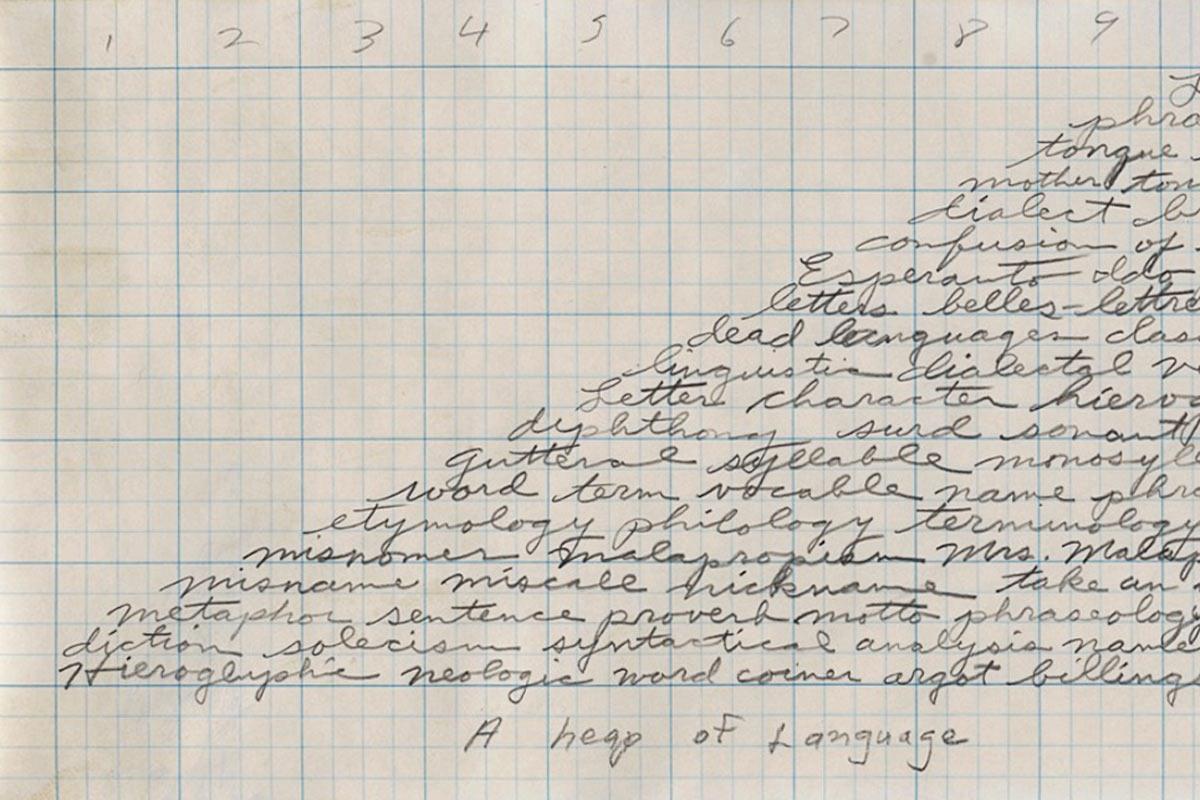 1 2 3 4 5 6 7 8 9
L
phra
tongue
mother ton
dialect b
confusion of
Esperanto Ido
letters belles-lettre
dead languages clas
linguistic dialectal v
Letter character hiero
diphthong surd sonant
gutteral syllable monosyll
word term vocable name phr
etymology philology terminology
misnomer malapropism Mrs. Malap
misname miscall nickname take an
metaphor sentence proverb motto phraseology
diction solecism syntactical analysis name
Hieroglyphic neologic word coiner argot billings
A heap of Language